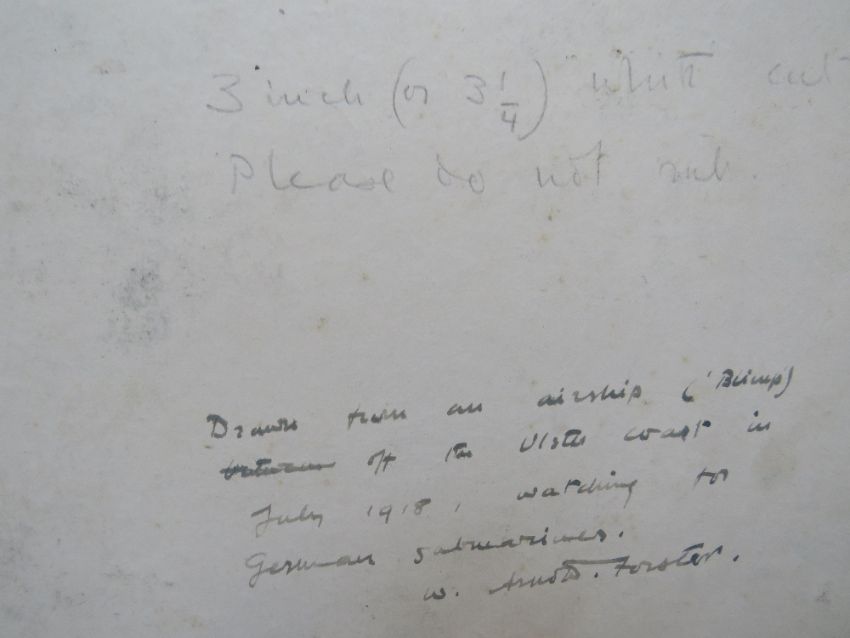 3 inch (or 3 1/4) white cut
Please do not rub.
Drawn from an airship ('Blimp)
between off the Ulster coast in
July 1918, watching for
German submarines.
W. Arnold-Forster.